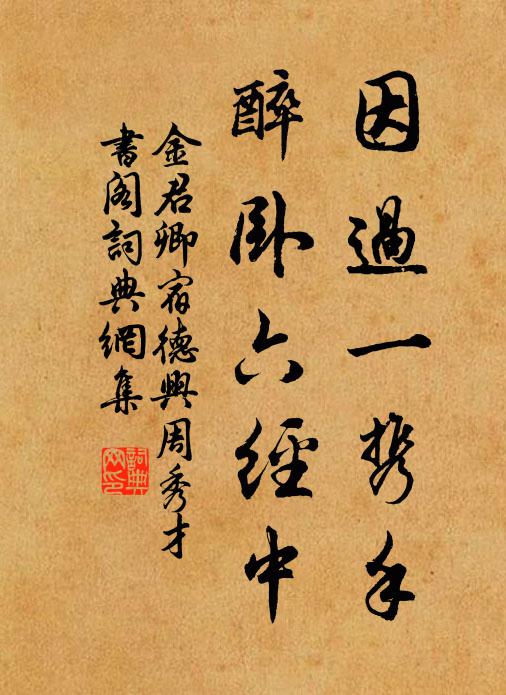 因過一携手
醉卧六經中
金君卿宿德興周秀才
書閣詞典網集
詞典網印